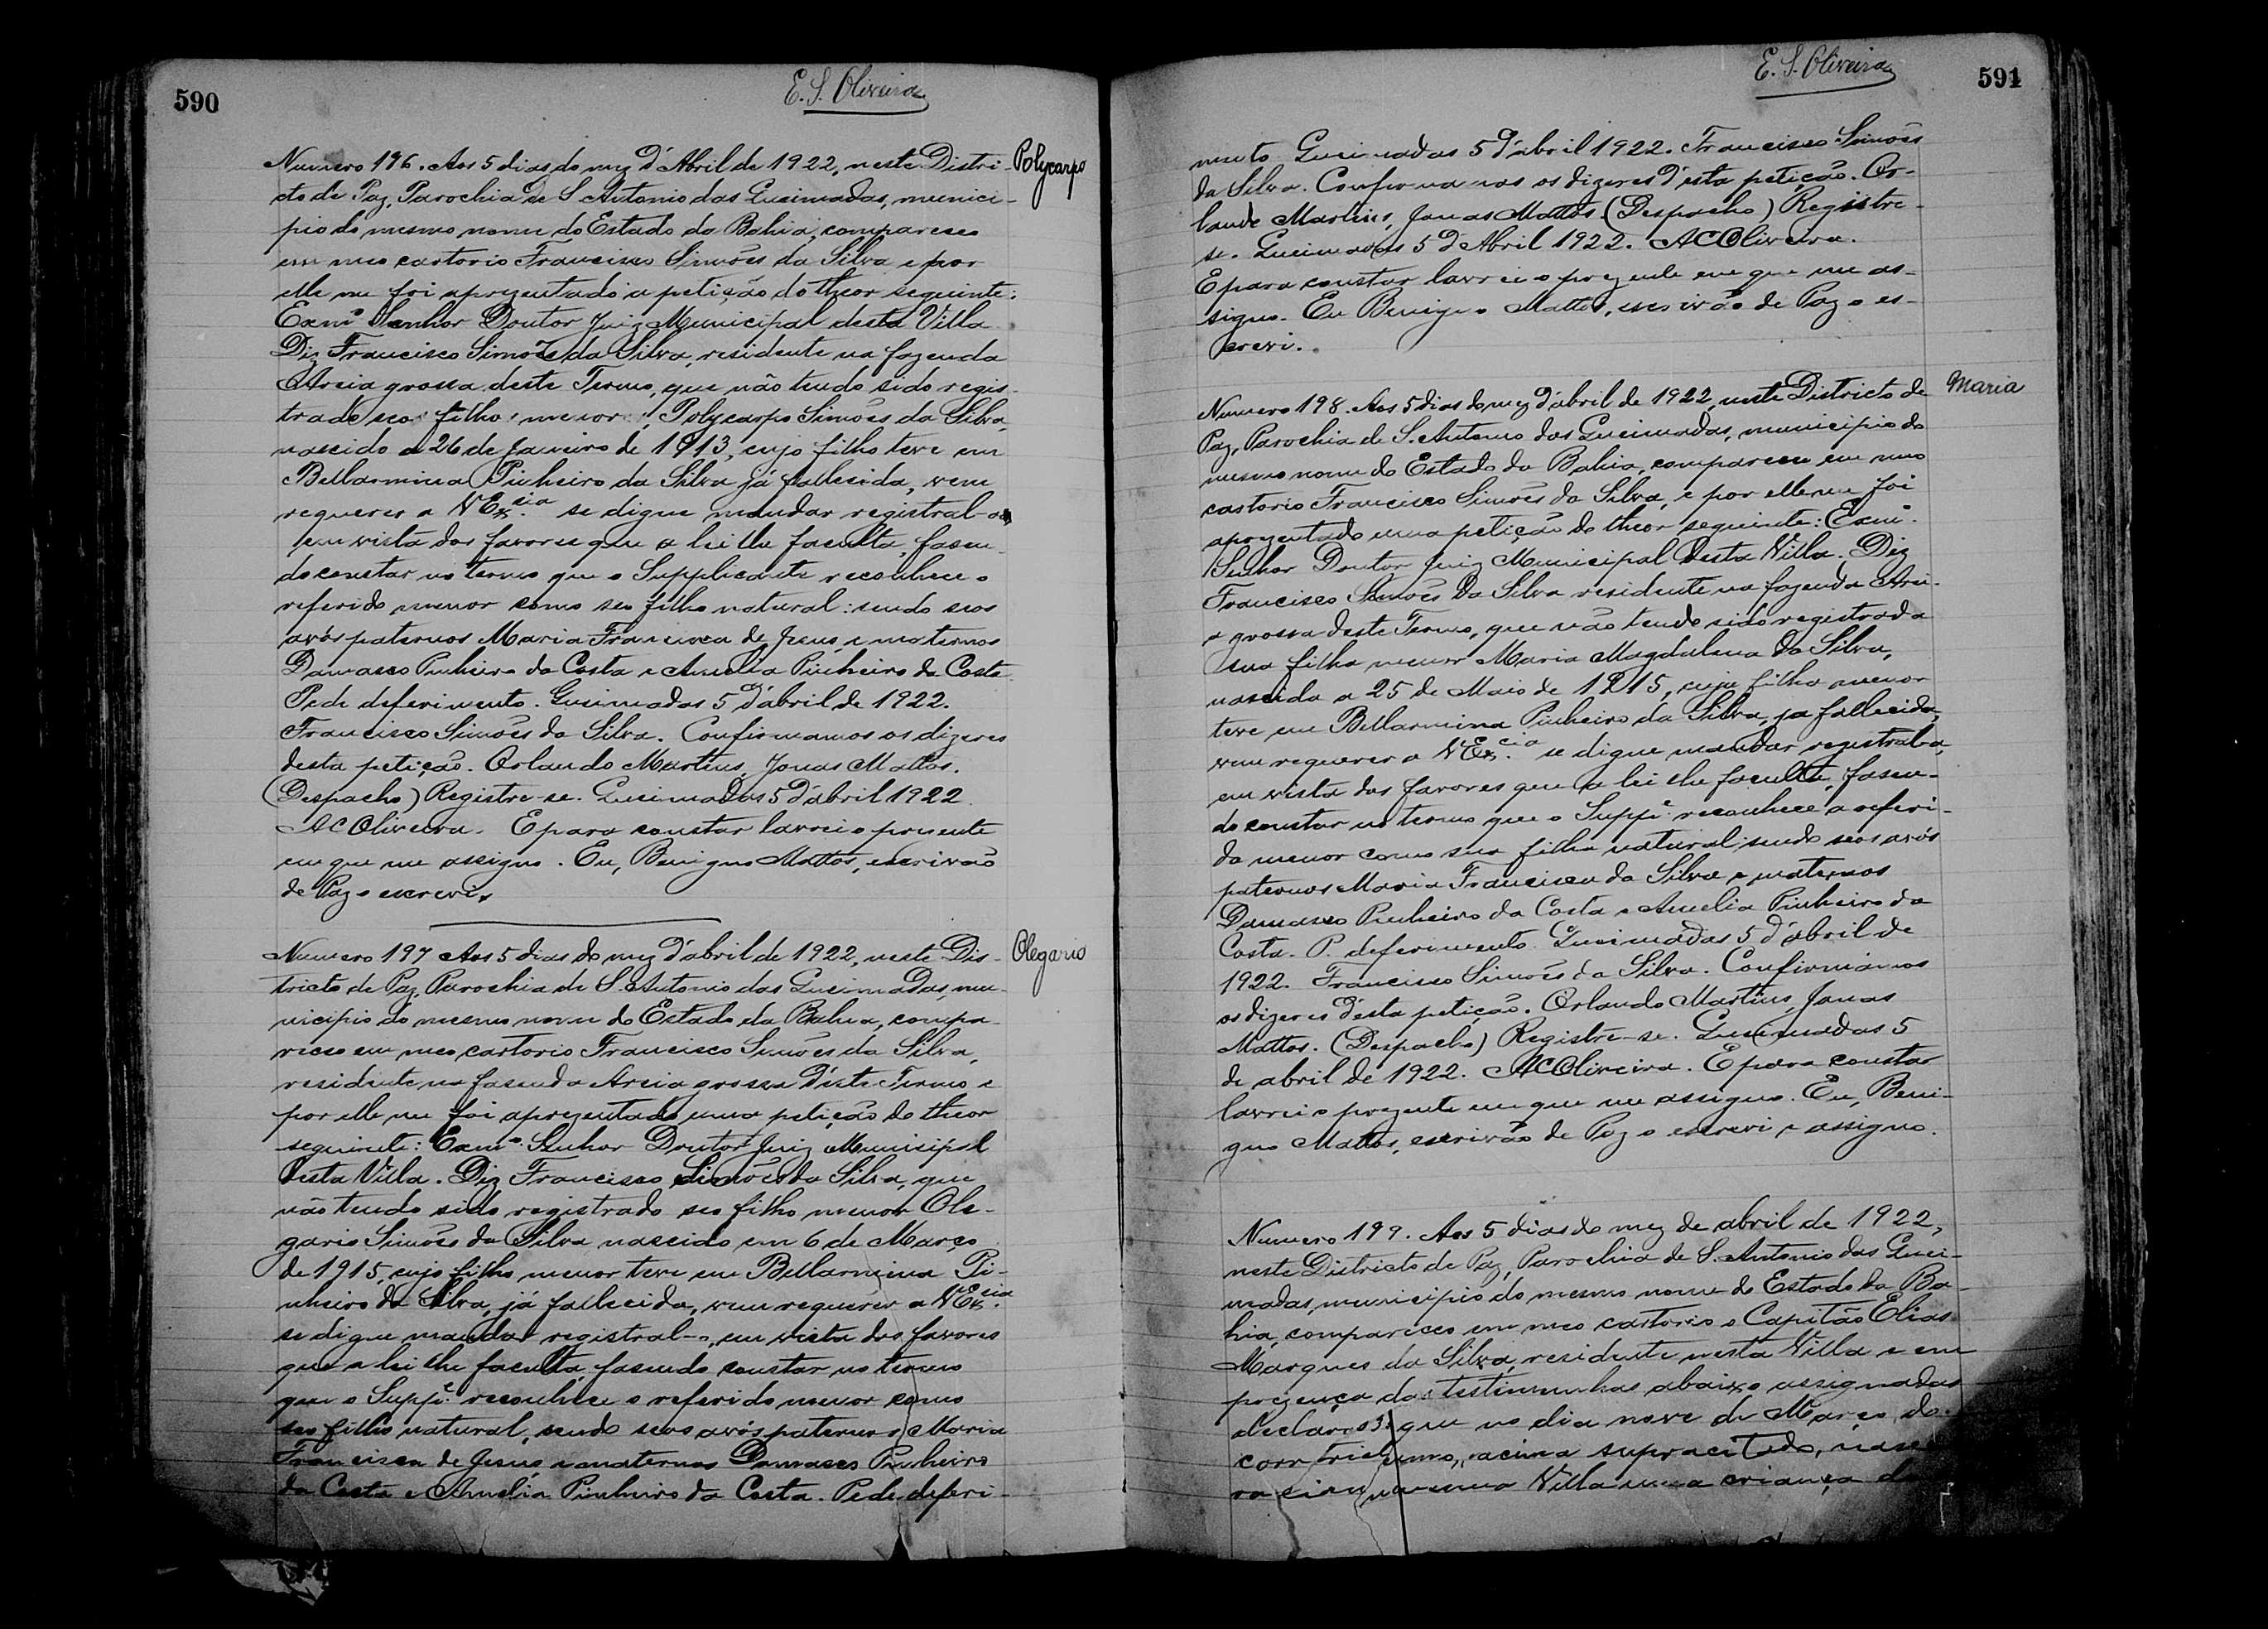 590
E. S. Oliveira
Numero 196. Aos 5 dias do mez d'Abril de 1922, neste Distri-
Polycarpo
cto de Paz, Parochia de S. Antonio das Queimadas, munici-
pio do mesmo nome do Estado da Bahia, compareceo
em meo cartorio Francisco Simões da Silva e por
elle me foi aprezentado a petição do theor seguinte:
Exmº Senhor Doutor Juiz Municipal desta Villa
Diz Francisco Simões da Silva, residente na fazenda
Areia grossa deste Termo, que não tendo sido regis-
trado seo filho menor, Polycarpo Simões da Silva,
nascido a 26 de Janeiro de 1913, cujo filho teve em
Bellarmina Pinheiro da Silva já fallecida, vem
requerer a V Excia. se digne mandar registral-o
em vista dos favores que a lei lhe faculta, fasen-
do constar no termo que o Supplicante reconhece o
referido menor como seo filho natural: sendo seos
avós paternos Maria Francisca de Jesus, e maternos
Damasco Pinheiro da Costa e Amelia Pinheiro da Costa
Pede deferimento. Queimadas 5 d'abril de 1922.
Francisco Simões da Silva. Confirmamos os dizeres
desta petição. Orlando Martins, Jonas Mattos.
(Despacho) Registre-se. Queimadas 5 d'abril 1922
AC Oliveira. E para constar lavrei o presente
em que me assigno. Eu, Benigno Mattos, escrivão
de Paz o escrevi.
Numero 197 Aos 5 dias do mez d'abril de 1922, neste Dis-
Olegario
tricto de Paz, Parochia de S. Antonio das Queimadas, mu-
nicipio do mesmo nome do Estado da Bahia, compa-
receo em meo cartorio Francisco Simões da Silva,
residente na fasenda Areia grossa d'este Termo e
por elle me foi aprezentado uma petição do theor
seguinte: Exmº Senhor Doutor Juiz Municipal
desta Villa. Diz Francisco Simões da Silva, que
não tendo sido registrado seo filho menor Ole-
gario Simões da Silva nascido em 6 de Março
de 1915, cujo filho menor teve em Bellarmina Pi-
nheiro da Silva, já fallecida, vem requerer a V Excia.
se digne mandar registral-o, em vista dos favores
que a lei lhe faculta, fasendo constar no termo
que o Suppe. reconhece o referido menor como
seo filho natural, sendo seos avós paternos Maria
Francisca de Jesus e maternos Damasco Pinheiro
da Costa e Amelia Pinheiro da Costa. Pede deferi-
591
E. S. Oliveira
mento Queimadas 5 d'abril 1922. Francisco Simões
da Silva. Confirmamos os dizeres d'esta petição. Or-
lando Martins, Jonas Mattos (Despacho) Registre-
se. Queimadas 5 d'Abril 1922. AC Oliveira.
E para constar lavrei o prezente em que me as-
signo. Eu Benigno Mattos, escrivão de Paz o es-
crevi.
Numero 198. Aos 5 dias do mez d'abril de 1922, neste Districto de
Maria
Paz, Parochia de S. Antonio das Queimadas, municipio do
mesmo nome do Estado da Bahia, compareceu em meo
cartorio Francisco Simões da Silva, e por elle me foi
aprezentado uma petição do theor seguinte: Exmº.
Senhor Doutor Juiz Municipal desta Villa. Diz
Francisco Simões da Silva residente na fazenda Arei-
a grossa deste Termo, que não tendo sido registrada
sua filha menor Maria Magdalena da Silva,
nascida a 25 de Maio de 1915, cuja filha menor
teve em Bellarmina Pinheiro da Silva, ja fallecida,
vem requerer a V Excia. se digne mandar registral-a,
em vista dos favores que a lei lhe faculta, fasen-
do constar no termo que o Suppe. reconhece a referi-
da menor como sua filha natural, sendo seos avós
paternos Maria Francisca da Silva e maternos
Damasco Pinheiro da Costa e Amelia Pinheiro da
Costa. P. deferimento. Queimadas, 5 d'abril de
1922. Francisco Simões da Silva. Confirmamos
os dizeres d'esta petição. Orlando Martins, Jonas
Mattos. (Despacho) Registre-se. Queimadas 5
de abril de 1922. AC Oliveira. E para constar
lavrei o prezente em que me assigno. Eu, Beni-
gno Mattos, escrivão de Paz o escrevi e assigno.
Numero 199. Aos 5 dias do mez de abril de 1922,
neste Districto de Paz, Parochia de S. Antonio das Quei-
madas, municipio do mesmo nome do Estado da Ba-
hia, compareceo em meo cartorio o Capitão Elias
Marques da Silva, residente nesta Villa e em
prezença das testimunhas abaixo assignadas
declarou: que no dia nove de Março do
anno, acima supracitado,
Villa uma criança